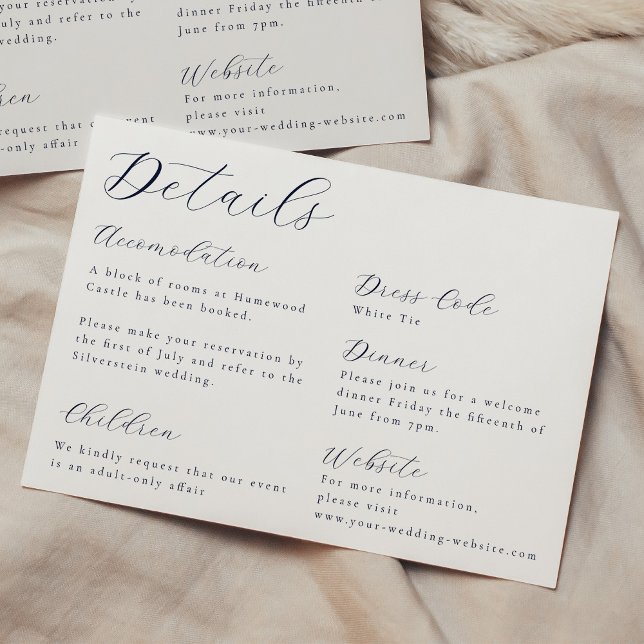 your reservation by
July and refer to the
wedding.
request that our event
adult-only affair
dinner Friday the fifteenth of
June from 7pm.
Website
For more information,
please visit
www.your-wedding-website.com
Details
Accomodation
A block of rooms at Humewood
Castle has been booked.
Please make your reservation by
the first of July and refer to the
Silverstein wedding.
Children
We kindly request that our event
is an adult-only affair
Dress Code
White Tie
Dinner
Please join us for a welcome
dinner Friday the fifteenth of
June from 7pm.
Website
For more information,
please visit
www.your-wedding-website.com